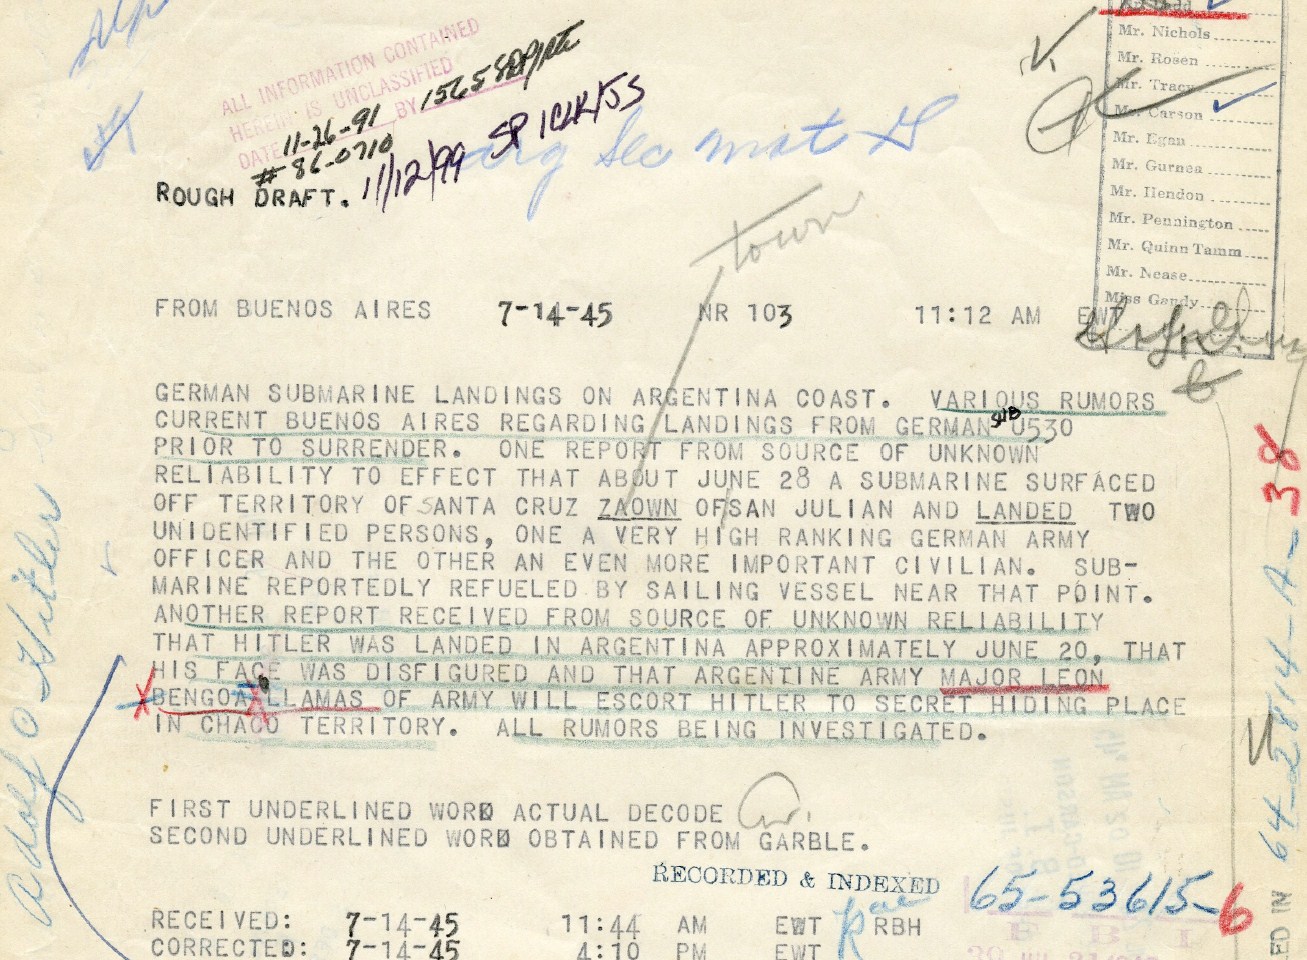 ALL INFORMATION CONTAINED
HEREIN IS UNCLASSIFIED
DATE 11-26-91 BY 1565
# 86-0710
11/12/99
ROUGH DRAFT.
Mr. Nichols
Mr. Rosen
Mr. Tracy
Mr. Carson
Mr. Egan
Mr. Gurnea
Mr. Hendon
Mr. Pennington
Mr. Quinn Tamm
Mr. Nease
Miss Gandy
town
FROM BUENOS AIRES 7-14-45 NR 103 11:12 AM EWT
GERMAN SUBMARINE LANDINGS ON ARGENTINA COAST. VARIOUS RUMORS
CURRENT BUENOS AIRES REGARDING LANDINGS FROM GERMAN SUB U530
PRIOR TO SURRENDER. ONE REPORT FROM SOURCE OF UNKNOWN
RELIABILITY TO EFFECT THAT ABOUT JUNE 28 A SUBMARINE SURFACED
OFF TERRITORY OF SANTA CRUZ ZAOWN OF SAN JULIAN AND LANDED TWO
UNIDENTIFIED PERSONS, ONE A VERY HIGH RANKING GERMAN ARMY
OFFICER AND THE OTHER AN EVEN MORE IMPORTANT CIVILIAN. SUB-
MARINE REPORTEDLY REFUELED BY SAILING VESSEL NEAR THAT POINT.
ANOTHER REPORT RECEIVED FROM SOURCE OF UNKNOWN RELIABILITY
THAT HITLER WAS LANDED IN ARGENTINA APPROXIMATELY JUNE 20, THAT
HIS FACE WAS DISFIGURED AND THAT ARGENTINE ARMY MAJOR LEON
BENGOA LLAMAS OF ARMY WILL ESCORT HITLER TO SECRET HIDING PLACE
IN CHACO TERRITORY. ALL RUMORS BEING INVESTIGATED.
FIRST UNDERLINED WORD ACTUAL DECODE
SECOND UNDERLINED WORD OBTAINED FROM GARBLE.
RECORDED & INDEXED
65-53615-6
RECEIVED: 7-14-45 11:44 AM EWT RBH
CORRECTED: 7-14-45 4:10 PM EWT
F B I
Adolf Hitler
64-2814-A-38